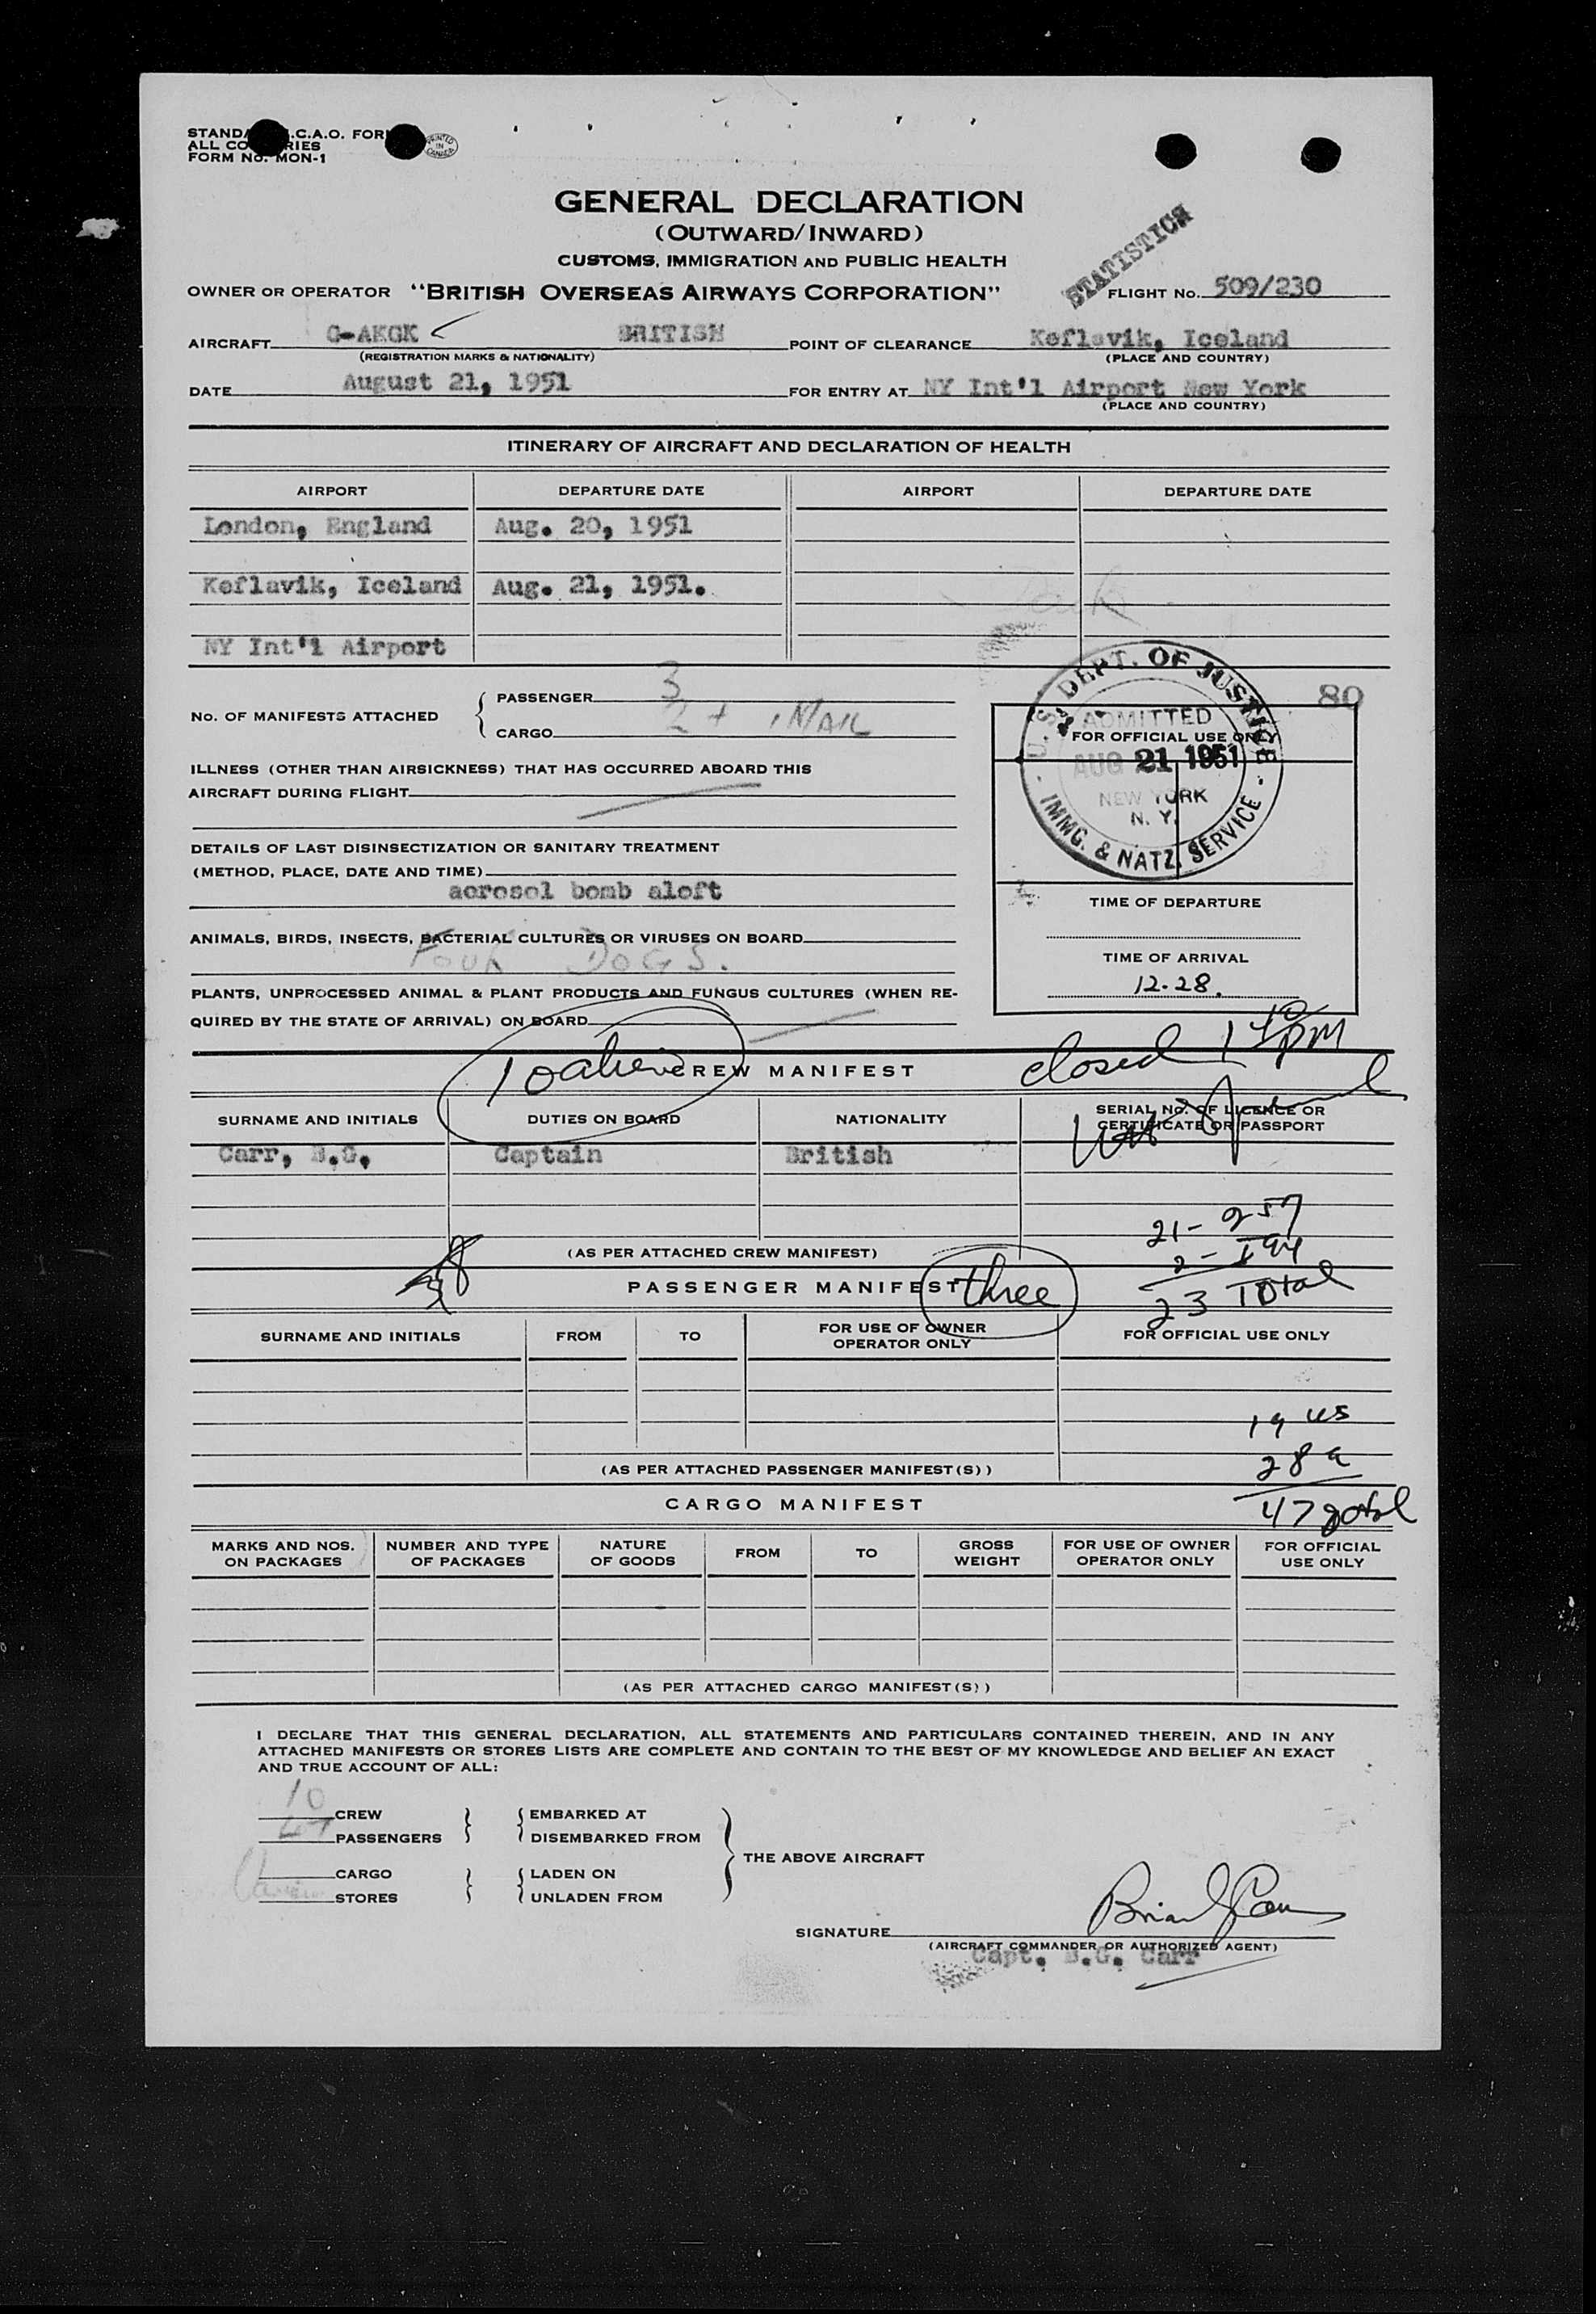 STANDA .C.A.O. FOR
ALL CO RIES
FORM No. MON-1
PRINTED IN CANADA
GENERAL DECLARATION
(OUTWARD/INWARD)
CUSTOMS, IMMIGRATION AND PUBLIC HEALTH
STATISTICS
OWNER OR OPERATOR "BRITISH OVERSEAS AIRWAYS CORPORATION" FLIGHT No. 509/230
AIRCRAFT G-AKGK BRITISH POINT OF CLEARANCE Keflavik, Iceland
(REGISTRATION MARKS & NATIONALITY) (PLACE AND COUNTRY)
DATE August 21, 1951 FOR ENTRY AT NY Int'l Airport New York
(PLACE AND COUNTRY)
ITINERARY OF AIRCRAFT AND DECLARATION OF HEALTH
AIRPORT DEPARTURE DATE AIRPORT DEPARTURE DATE
London, England Aug. 20, 1951
Keflavik, Iceland Aug. 21, 1951.
NY Int'l Airport
No. OF MANIFESTS ATTACHED
PASSENGER 3
CARGO 2 + 1 MAIL
80
U.S. DEPT. OF JUSTICE
ADMITTED
FOR OFFICIAL USE ONLY
AUG 21 1951
NEW YORK
N. Y.
IMMG. & NATZ. SERVICE
ILLNESS (OTHER THAN AIRSICKNESS) THAT HAS OCCURRED ABOARD THIS
AIRCRAFT DURING FLIGHT
DETAILS OF LAST DISINSECTIZATION OR SANITARY TREATMENT
(METHOD, PLACE, DATE AND TIME)
aerosol bomb aloft
TIME OF DEPARTURE
ANIMALS, BIRDS, INSECTS, BACTERIAL CULTURES OR VIRUSES ON BOARD
FOUR DOGS.
TIME OF ARRIVAL
12.28.
PLANTS, UNPROCESSED ANIMAL & PLANT PRODUCTS AND FUNGUS CULTURES (WHEN RE-
QUIRED BY THE STATE OF ARRIVAL) ON BOARD
10 alien CREW MANIFEST closed 1 40 PM
SURNAME AND INITIALS DUTIES ON BOARD NATIONALITY SERIAL No. OF LICENCE OR
CERTIFICATE OR PASSPORT
Carr, B.G. Captain British
21- 257
(AS PER ATTACHED CREW MANIFEST) 2- I 94
PASSENGER MANIFEST three 23 Total
SURNAME AND INITIALS FROM TO FOR USE OF OWNER
OPERATOR ONLY FOR OFFICIAL USE ONLY
19 us
28 a
(AS PER ATTACHED PASSENGER MANIFEST(S))
CARGO MANIFEST 47 total
MARKS AND NOS.
ON PACKAGES NUMBER AND TYPE
OF PACKAGES NATURE
OF GOODS FROM TO GROSS
WEIGHT FOR USE OF OWNER
OPERATOR ONLY FOR OFFICIAL
USE ONLY
(AS PER ATTACHED CARGO MANIFEST(S))
I DECLARE THAT THIS GENERAL DECLARATION, ALL STATEMENTS AND PARTICULARS CONTAINED THEREIN, AND IN ANY
ATTACHED MANIFESTS OR STORES LISTS ARE COMPLETE AND CONTAIN TO THE BEST OF MY KNOWLEDGE AND BELIEF AN EXACT
AND TRUE ACCOUNT OF ALL:
10 CREW EMBARKED AT
47 PASSENGERS DISEMBARKED FROM
THE ABOVE AIRCRAFT
CARGO LADEN ON
STORES UNLADEN FROM
SIGNATURE Brian G Carr
(AIRCRAFT COMMANDER OR AUTHORIZED AGENT)
Capt. B.G. Carr